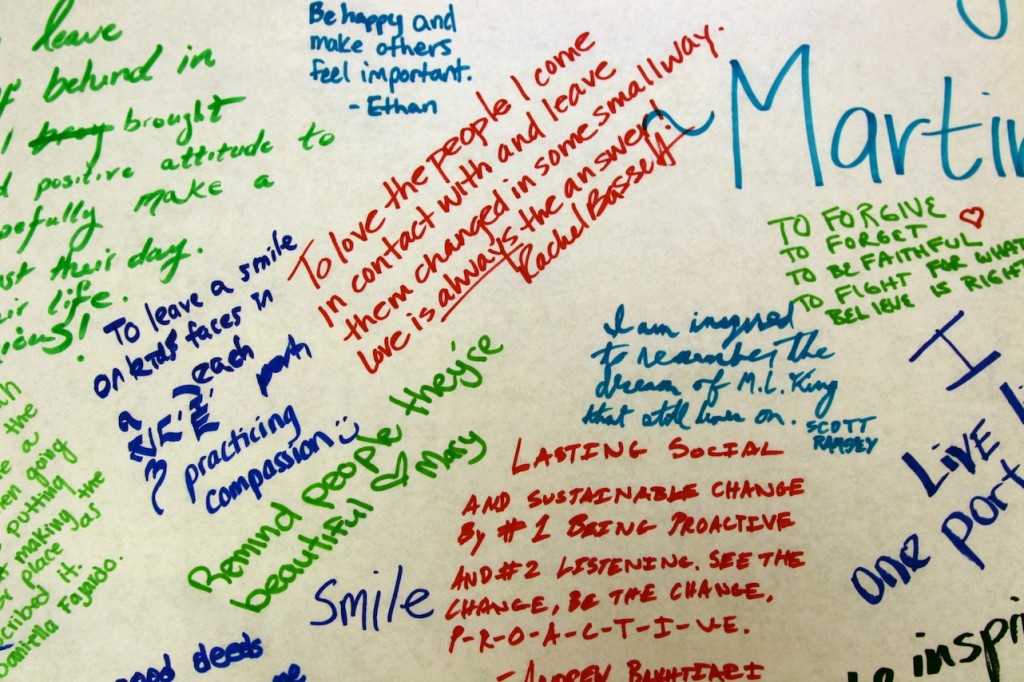 leave
behind in
brought
positive attitude to
make a
their day.
life.
Be happy and
make others
feel important.
- Ethan
To love the people I come
in contact with and leave
them changed in some small way.
love is always the answer!
Rachel Bassett
~Martin
TO FORGIVE
TO FORGET
TO BE FAITHFUL
TO FIGHT FOR WHAT
BELIEVE IS RIGHT
To leave a smile
on kids' faces in
each
practicing
compassion
Remind people they're
beautiful ♡ Mary
I am inspired
to remember the
dream of M.L. King
that still lives on.
SCOTT
RAMSEY
LASTING SOCIAL
AND SUSTAINABLE CHANGE
By #1 BEING PROACTIVE
AND #2 LISTENING. SEE THE
CHANGE, BE THE CHANGE,
P-R-O-A-C-T-I-V-E.
- ANDREW BAKHTIARI
I
LIVE
one
Smile
the
a
going
putting
making
place as the
it.
Fajardo.
good deeds
inspri